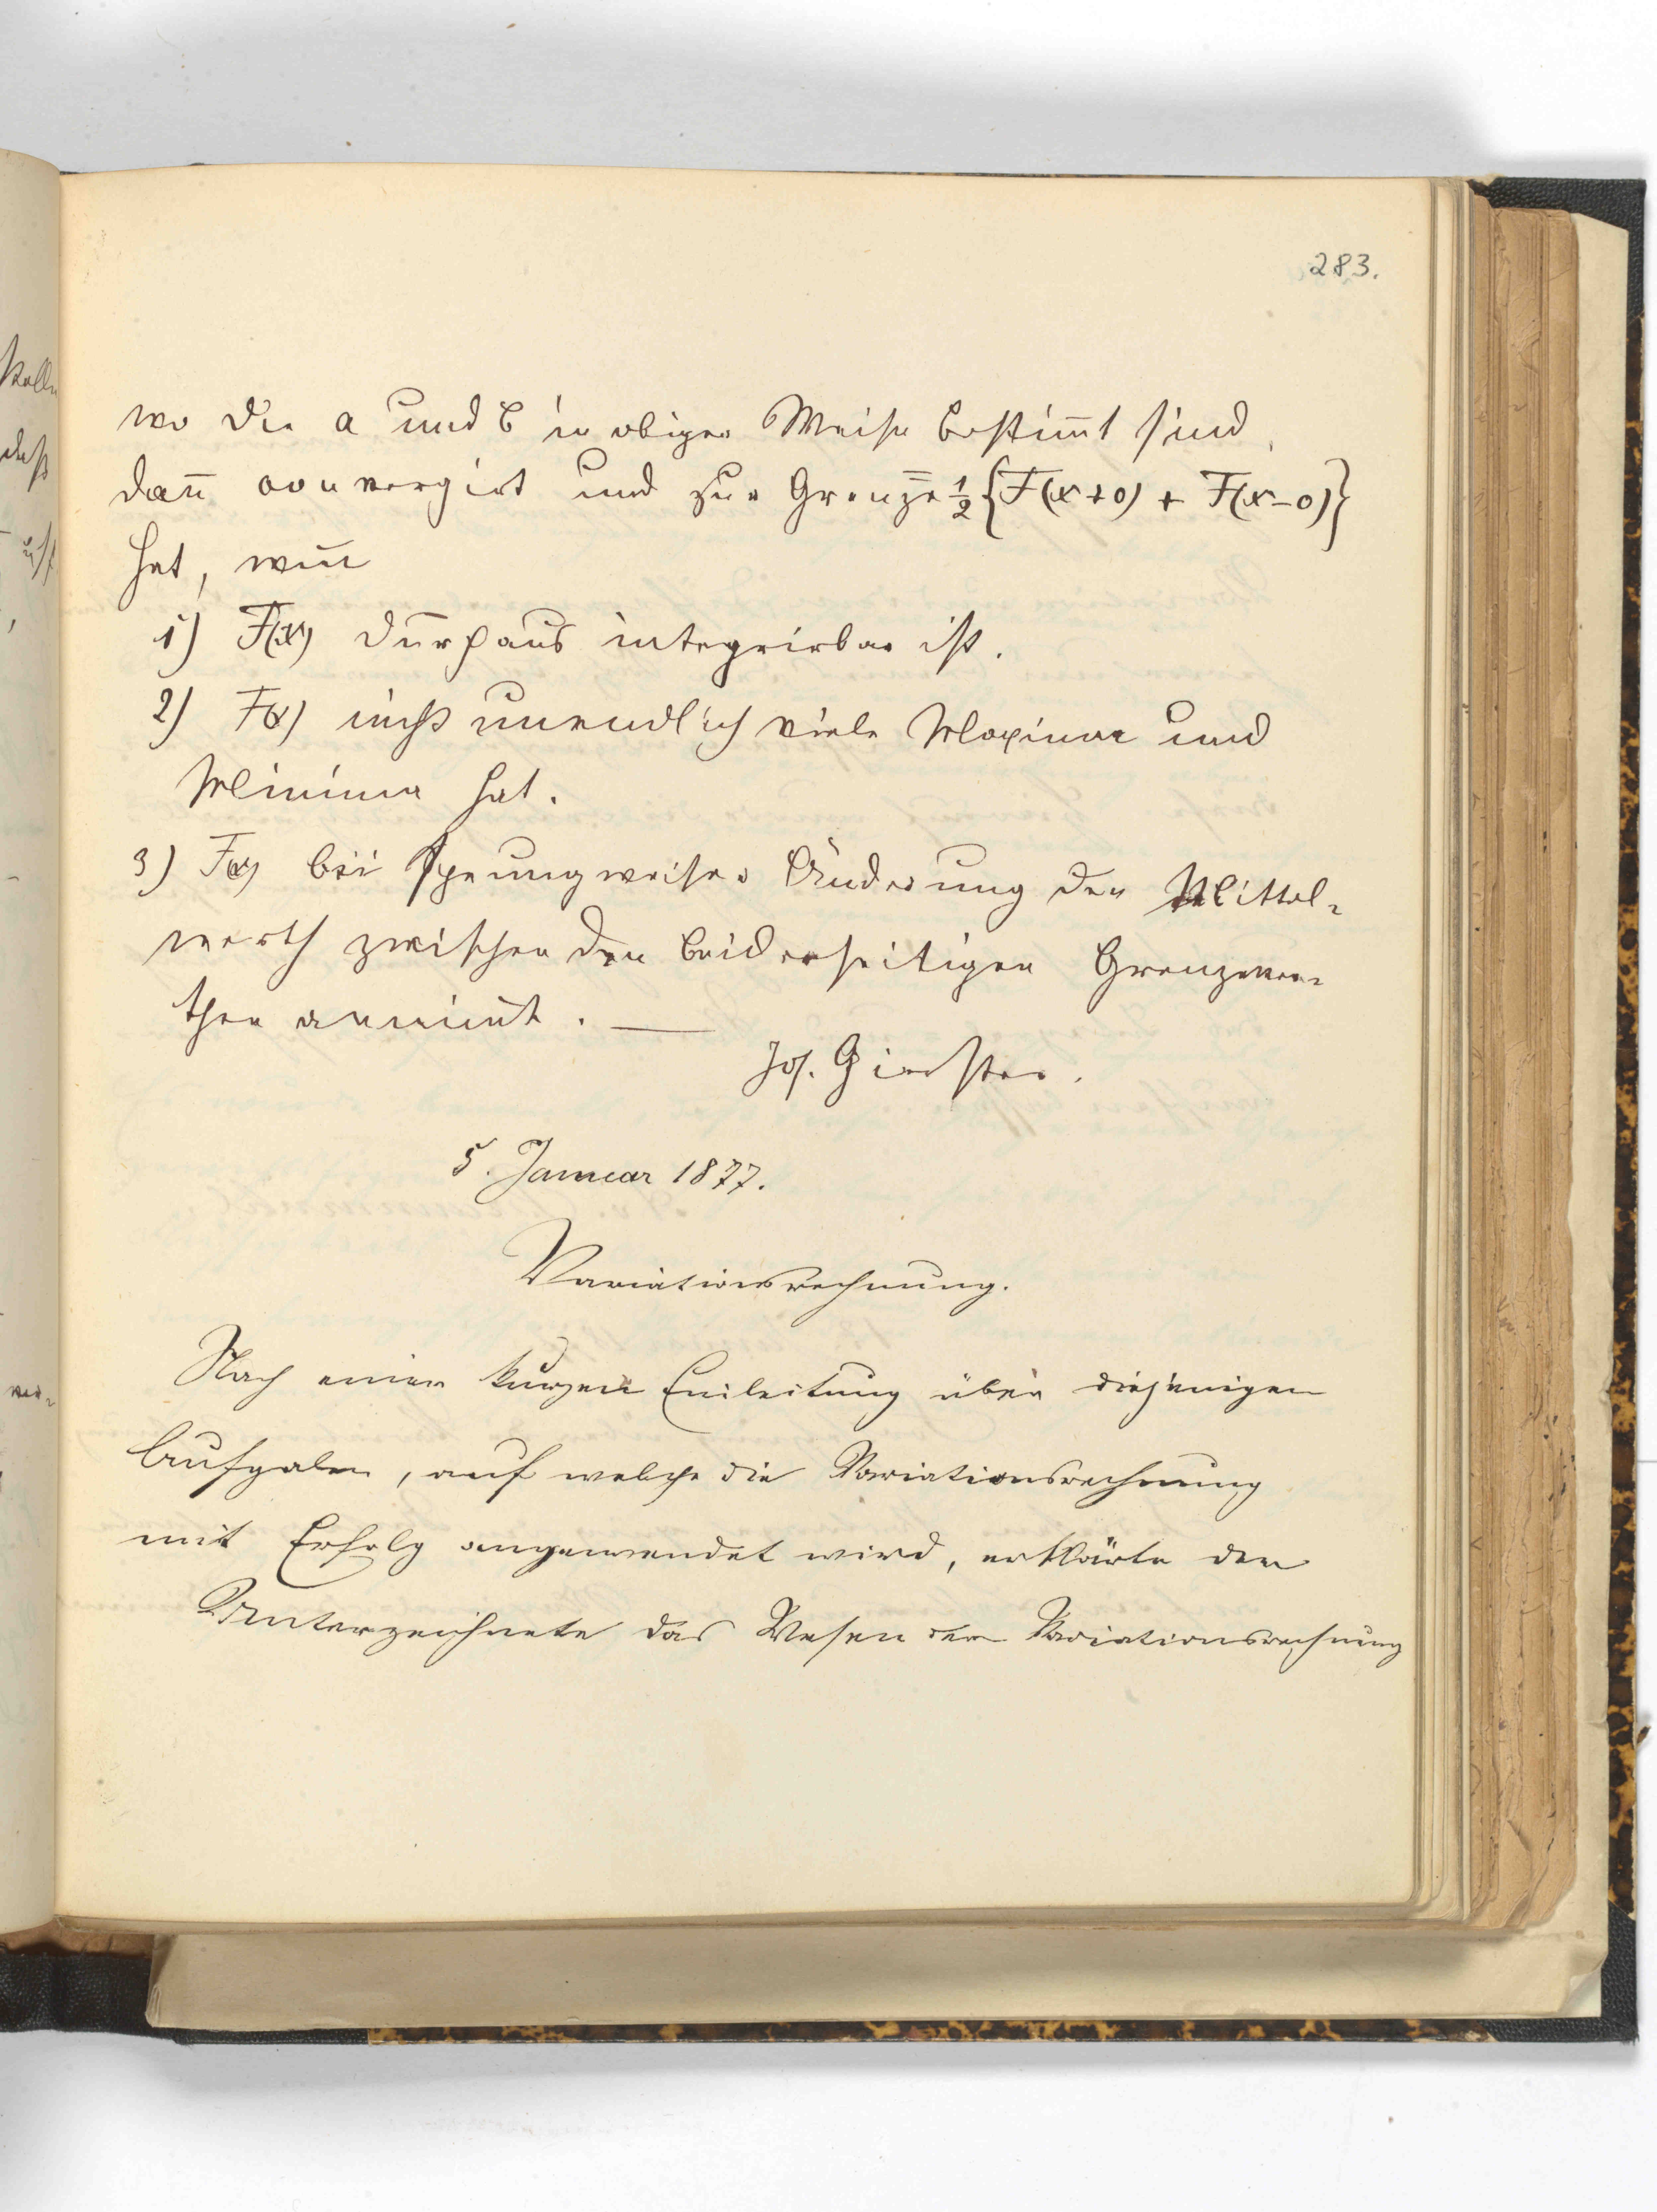 283.
wo die a und b in obiger Weise bestim̅t sind,
dan̅ convergirt und zur Grenze ½ {F(x+0) + F(x-0)}
hat, wen̅
1) F(x) durchaus integrirbar ist.
2) F(x) nicht unendlich viele Maxima und
Minima hat.
3) F(x) bei sprungweiser Änderung den Mittel-
werth zwischen den beiderseitigen Grenzwer-
then annim̅t. —
Jos. Gierster.
5. Januar 1877.
Variationsrechnung.
Nach einer kurzen Einleitung über diejenigen
Aufgaben, auf welche die Variationsrechnung
mit Erfolg angewendet wird, erklärte der
Unterzeichnete das Wesen der Variationsrechnung